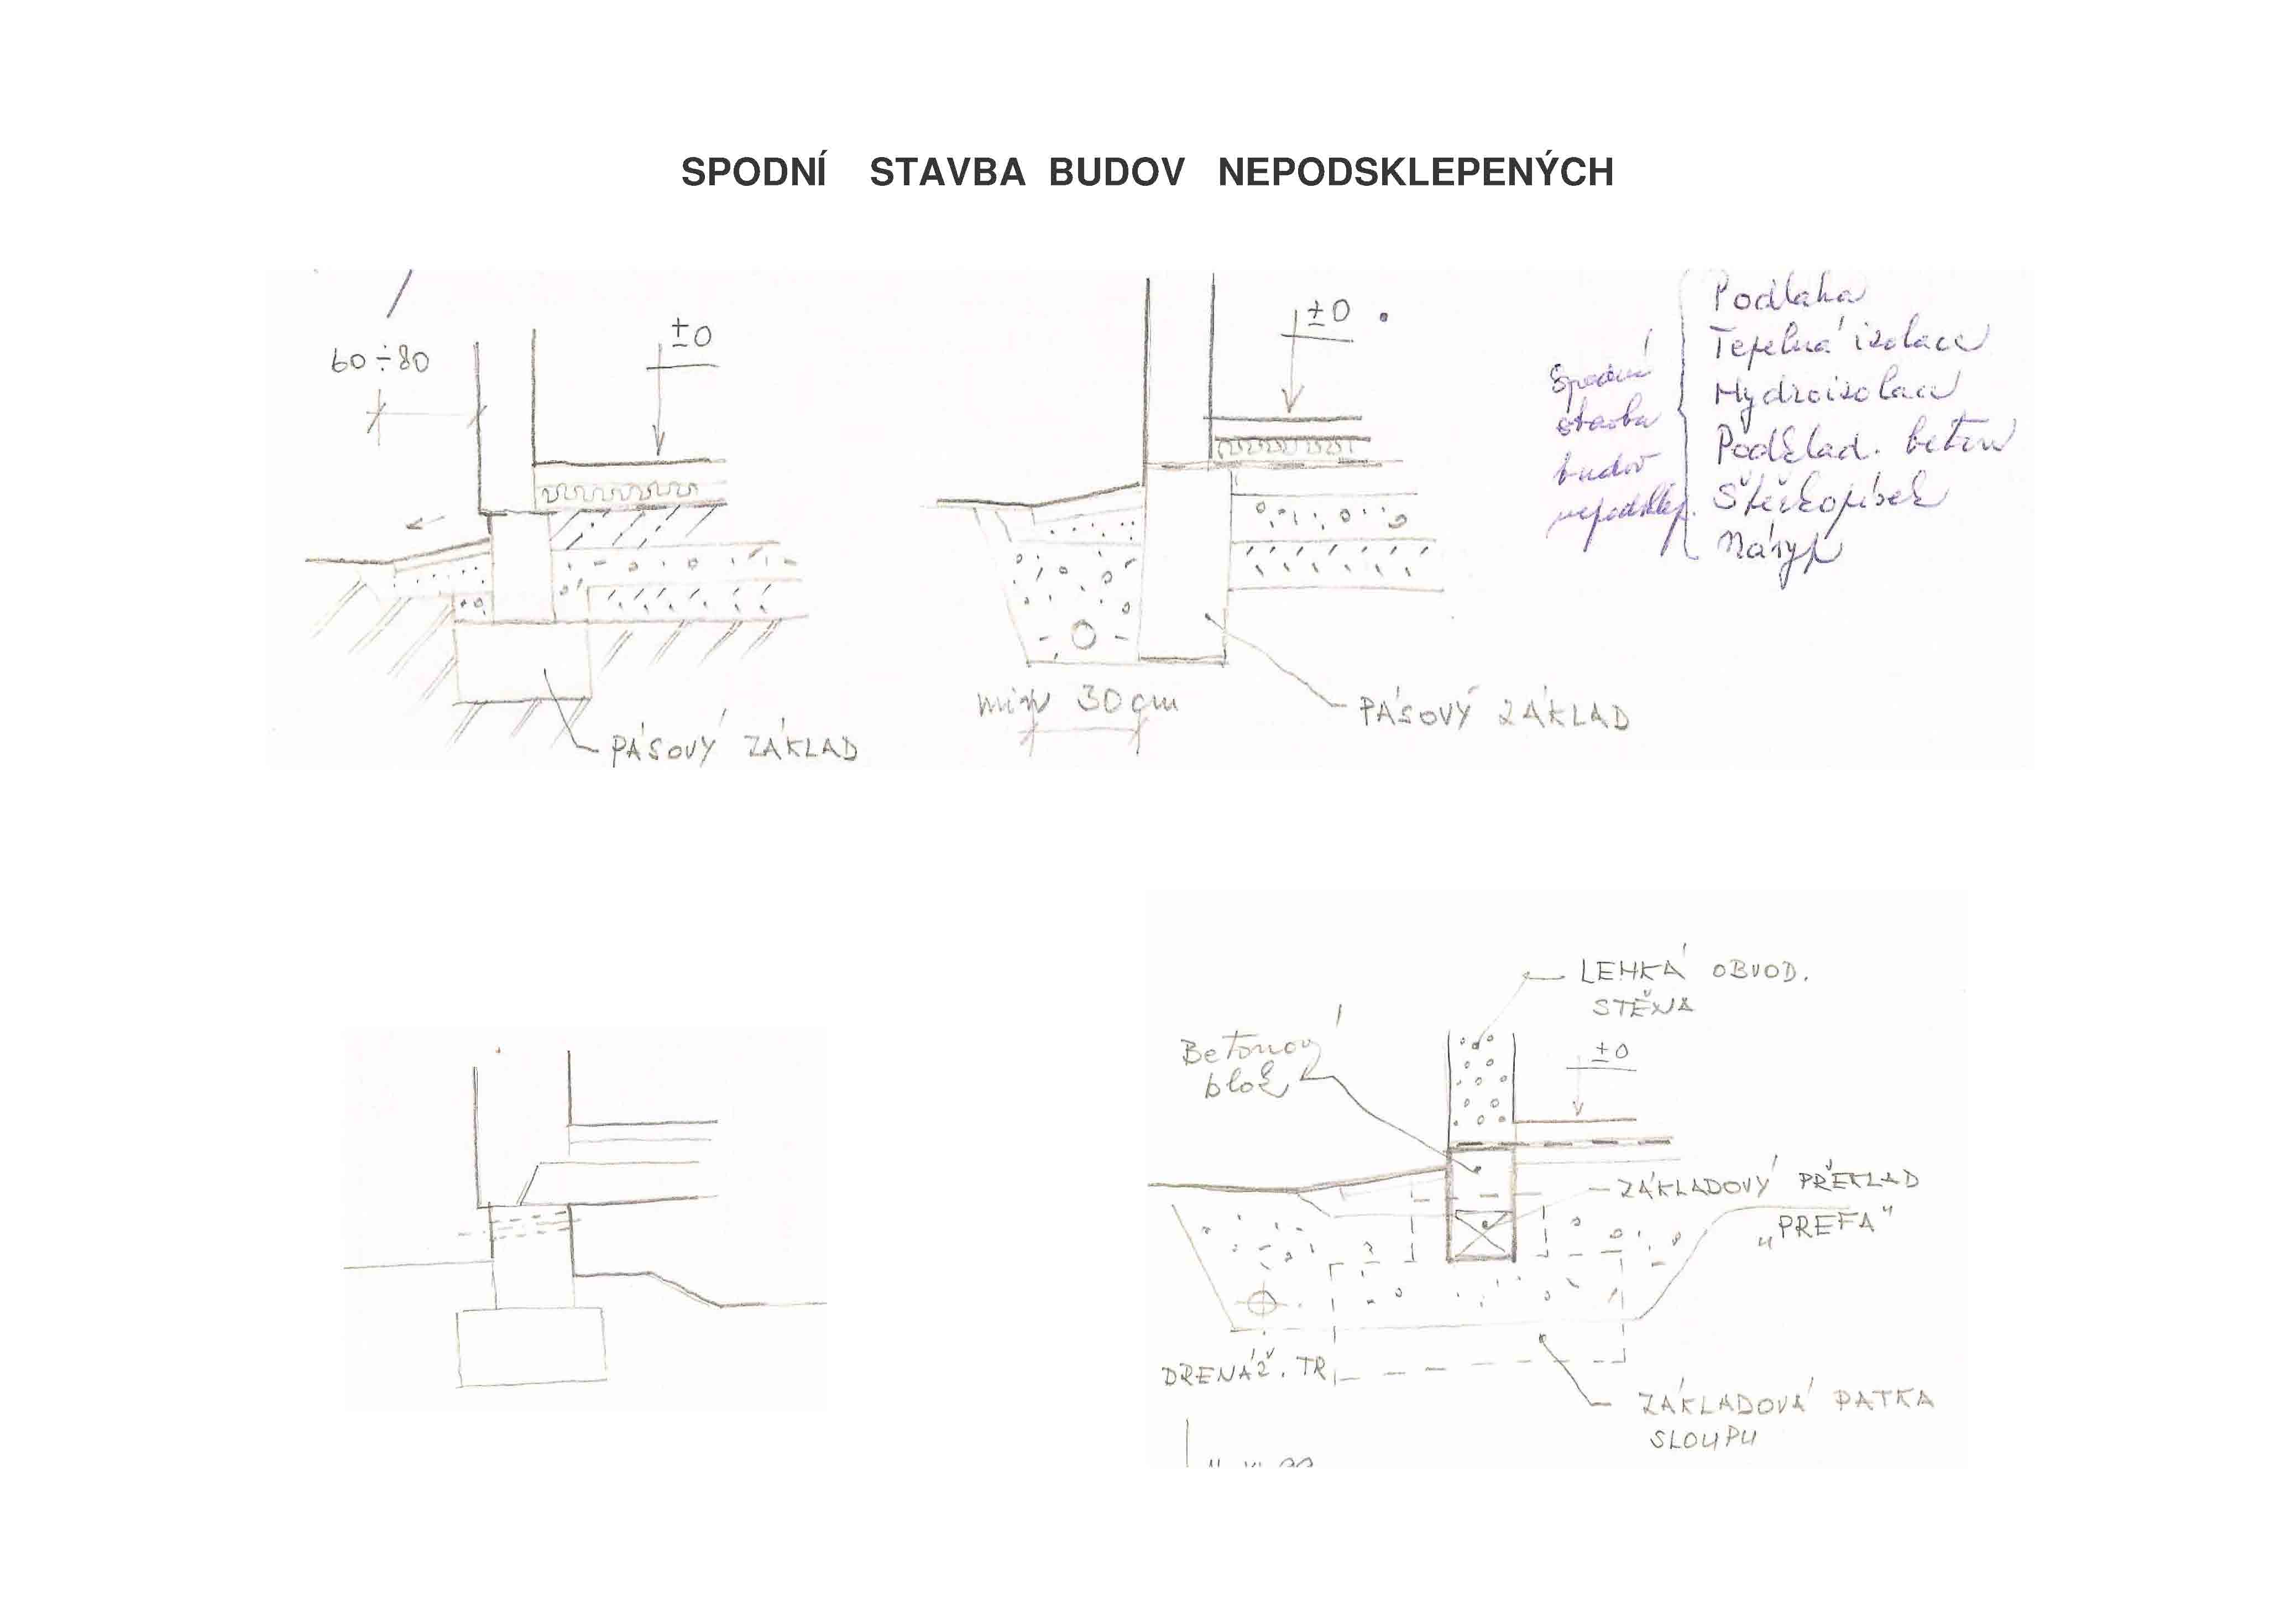 SPODNÍ STAVBA BUDOV NEPODSKLEPENÝCH
60÷80
±0
PÁSOVÝ ZÁKLAD
±0
min 30cm
PÁSOVÝ ZÁKLAD
Spodní
stavba
budov
nepodsklep.
Podlaha
Tepelná izolace
Hydroizolace
Podklad. beton
Štěrkopísek
Násyp
LEHKÁ OBVOD.
STĚNA
Betonový
blok
±0
ZÁKLADOVÝ PŘEKLAD
„PREFA"
DRENÁŽ. TR.
ZÁKLADOVÁ PATKA
SLOUPU